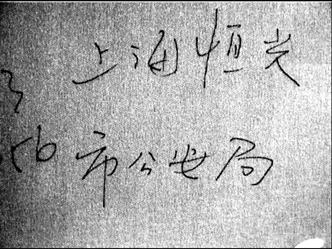 上海恒光
市公安局